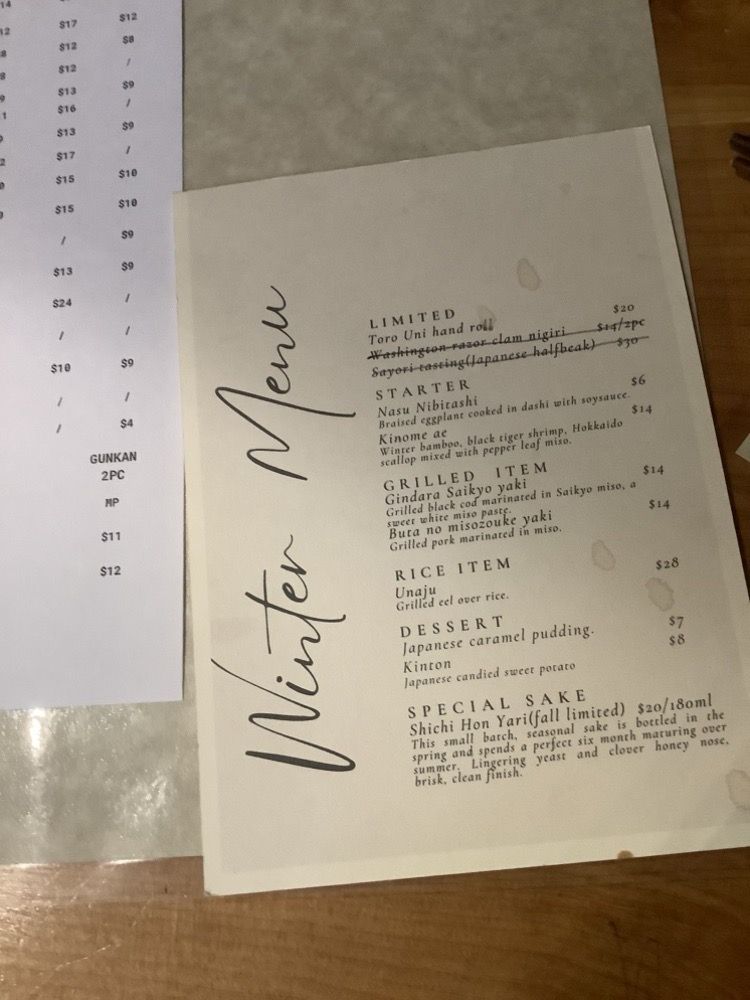 14
$17 $12
12
$12 $8
8
$12 /
8
$13 $9
9
$16 /
1
$13 $9
$17 /
2
$15 $10
0
$15 $10
/ $9
$13 $9
$24 /
/ /
$10 $9
/ /
/ $4
GUNKAN
2PC
MP
$11
$12
Winter Menu
LIMITED
Toro Uni hand roll $20
Washington razor clam nigiri $14/2pc
Sayori tasting(Japanese halfbeak) $30
STARTER
Nasu Nibitashi $6
Braised eggplant cooked in dashi with soysauce.
Kinome ae $14
Winter bamboo, black tiger shrimp, Hokkaido
scallop mixed with pepper leaf miso.
GRILLED ITEM
Gindara Saikyo yaki $14
Grilled black cod marinated in Saikyo miso, a
sweet white miso paste.
Buta no misozouke yaki $14
Grilled pork marinated in miso.
RICE ITEM
Unaju $28
Grilled eel over rice.
DESSERT
Japanese caramel pudding. $7
Kinton $8
Japanese candied sweet potato
SPECIAL SAKE
Shichi Hon Yari(fall limited) $20/180ml
This small batch, seasonal sake is bottled in the
spring and spends a perfect six month maturing over
summer. Lingering yeast and clover honey nose,
brisk, clean finish.